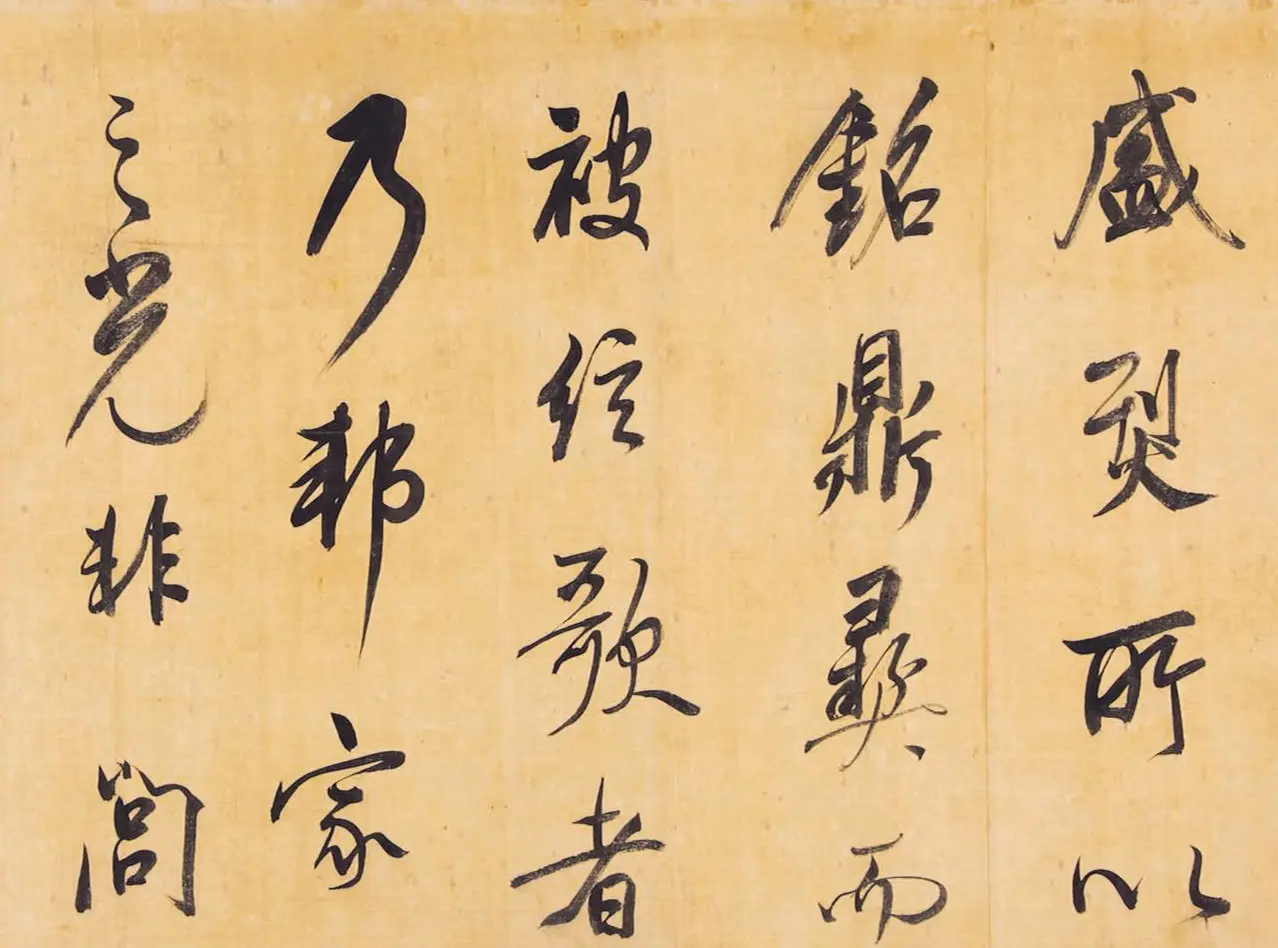 盛烈所以
銘鼎彝而
被絃歌者
乃邦家
之光非閭